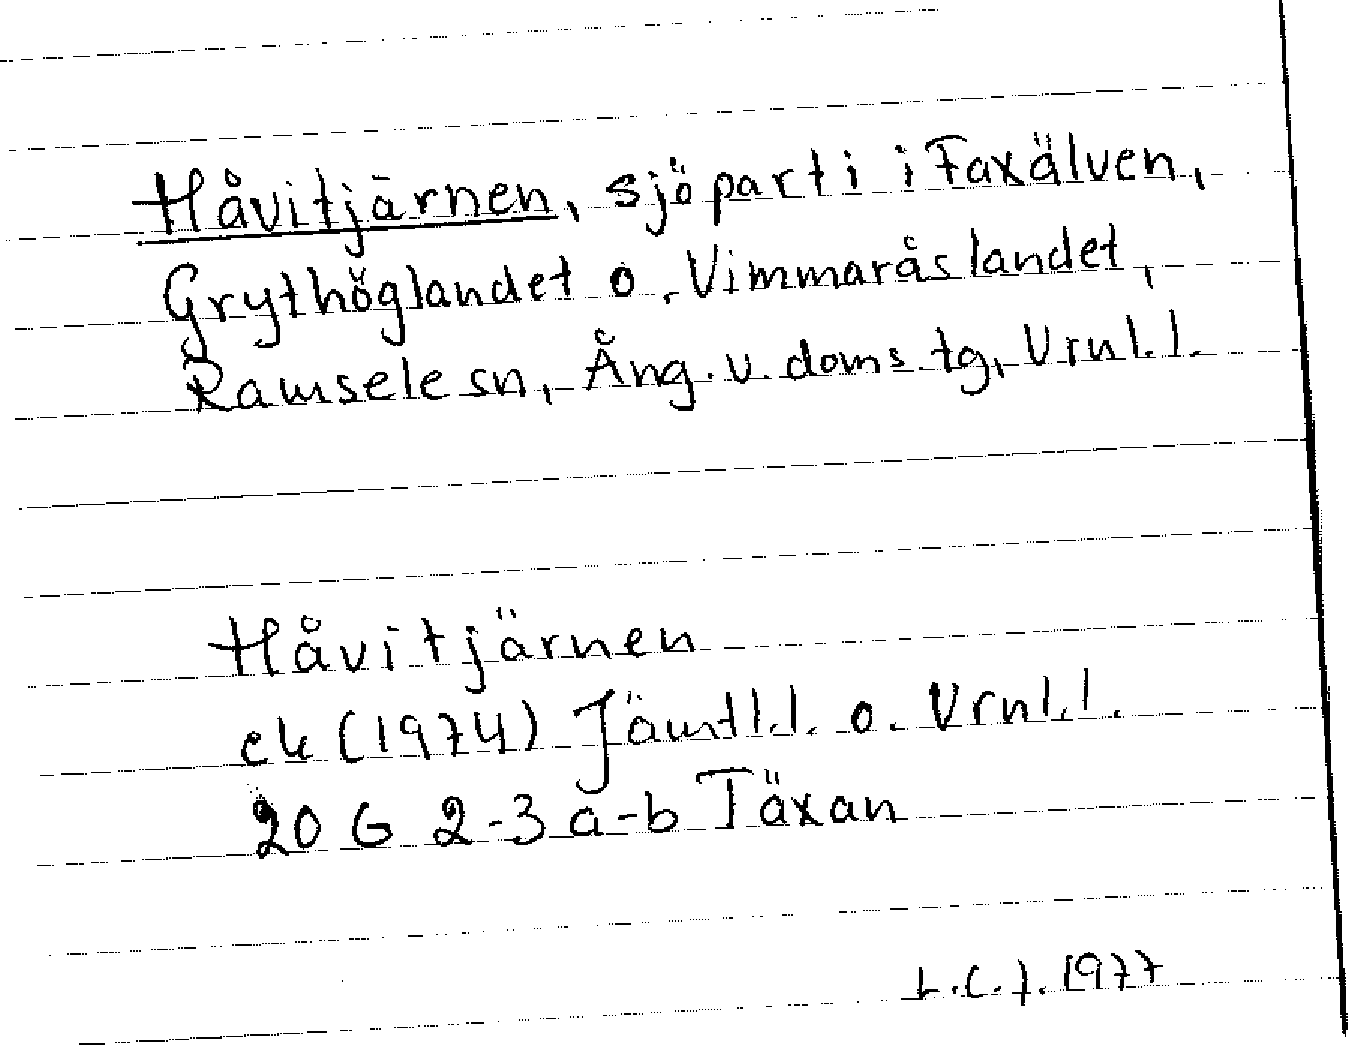 Håvitjärnen, sjöparti i Faxälven,
Grythöglandet o. Vimmaråslandet,
Ramsele sn, Ång. v. doms tg, Vrnl.l.
Håvitjärnen
ek (1974) Jämtl.l. o. Vrnl.l.
20 G 2-3 a-b Täxan
L.C.J. 1977